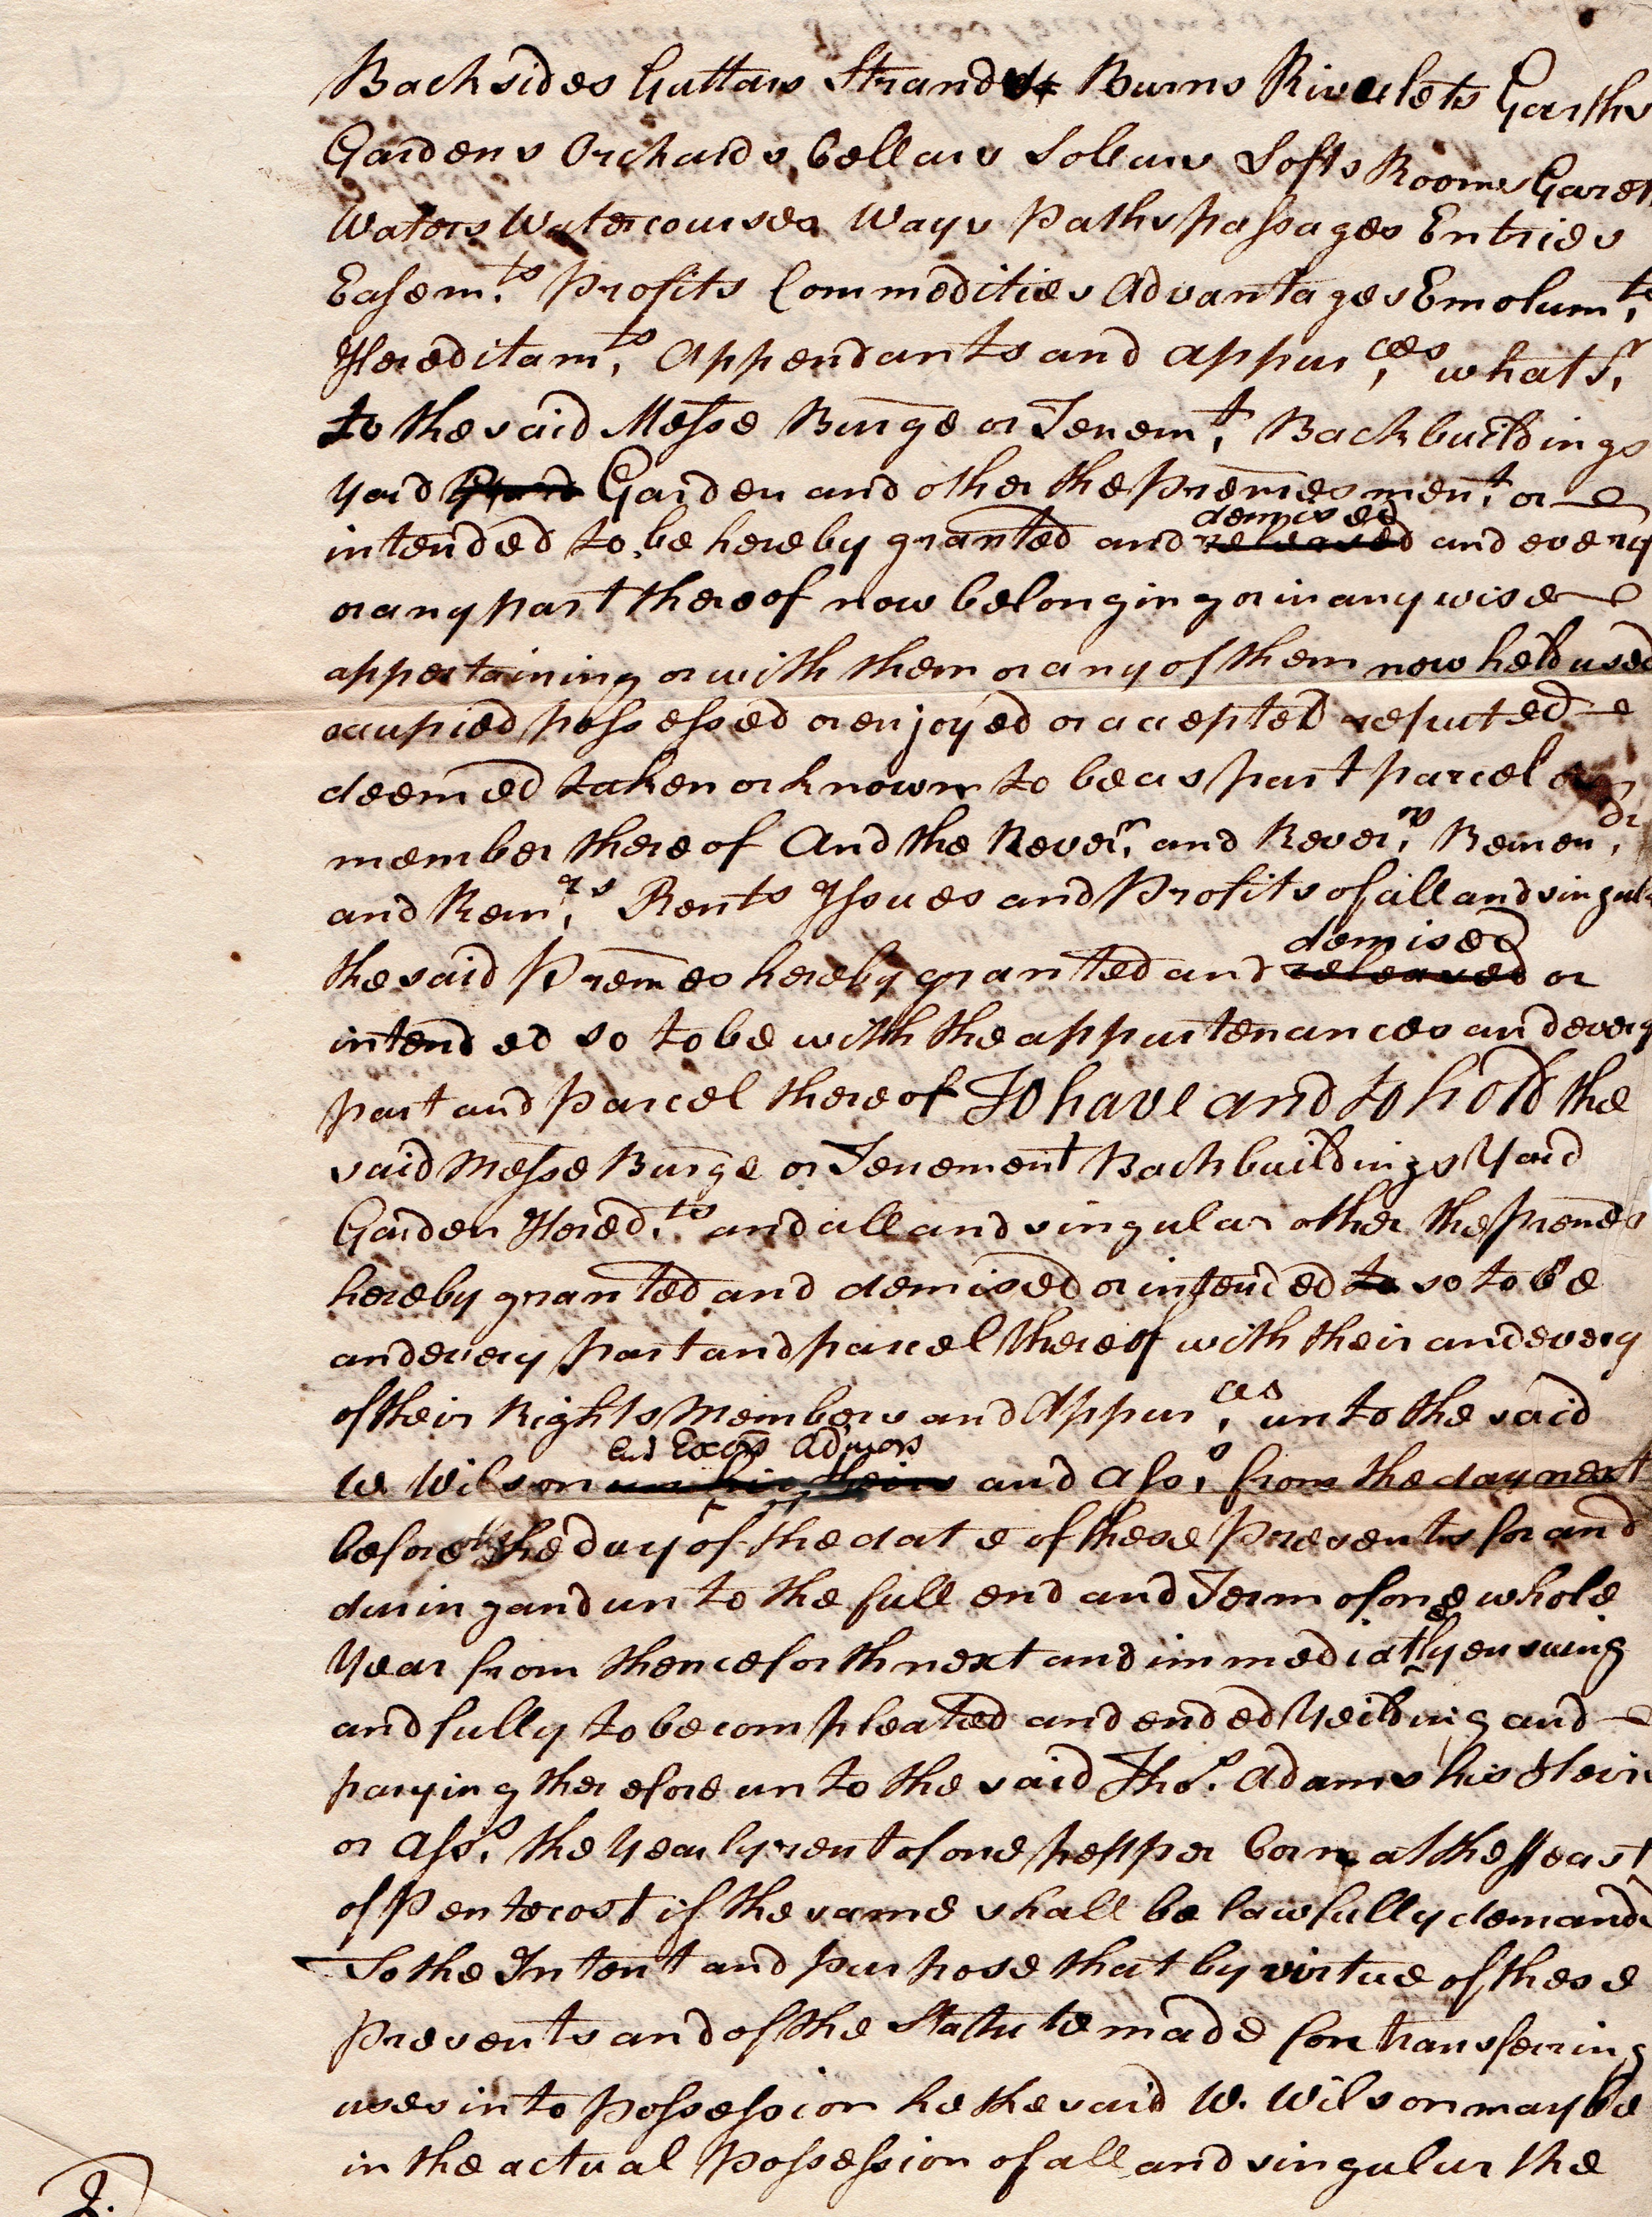 Backsides Guttars Strands Burns Rivulets Garths
Gardens Orchards Cellars Sollars Lofts Rooms Garets
Waters Watercourses Ways Paths passages Entries
Easem.ts Profits Commodities Advantages Emolum.ts
Hereditam.ts Appendants and appur.ces whats.r
to the said Messe Burge or Tenem.t Backbuildings
yard Garden and other the Premes ment.t or
demised
intended to be hereby granted and released and every
or any part thereof now belonging or in any wise
appertaining or with them or any of them now held used
occupied possessed or enjoyed or accepted reputed
deemed taken or known to be as part parcel or
member thereof And the Rever.n and Rever.ns Remen.dr
and Rem.rs Rents Issues and Profits of all and singul
demised
the said Premes hereby granted and released or
intended so to be with the appurtenances and every
part and parcel thereof To have and to hold the
said Messe Burge or Tenement Backbuildings Yard
Garden Hered.ts and all and singular other the Premes
hereby granted and demised or intended to so to be
and every part and parcel thereof with their and every
of their Rights Members and Appur.ces unto the said
Exōrs Admors
W. Wilson heirs and Ass.s from the day next
before the day of the date of these Presents for and
during and unto the full end and Term of one whole
Year from thenceforth next and immediately ensuing
and fully to be compleated and ended Yeilding and
paying therefore unto the said Tho.s Adams his Heirs
or Ass.s the Yearly rent of one pepper Corn at the ffeast
of Pentecost if the same shall be lawfully demanded
To the Intent and purpose that by virtue of these
Presents and of the Statute made for transferring
uses into possession he the said W. Wilson may be
in the actual Possession of all and singular the
2.